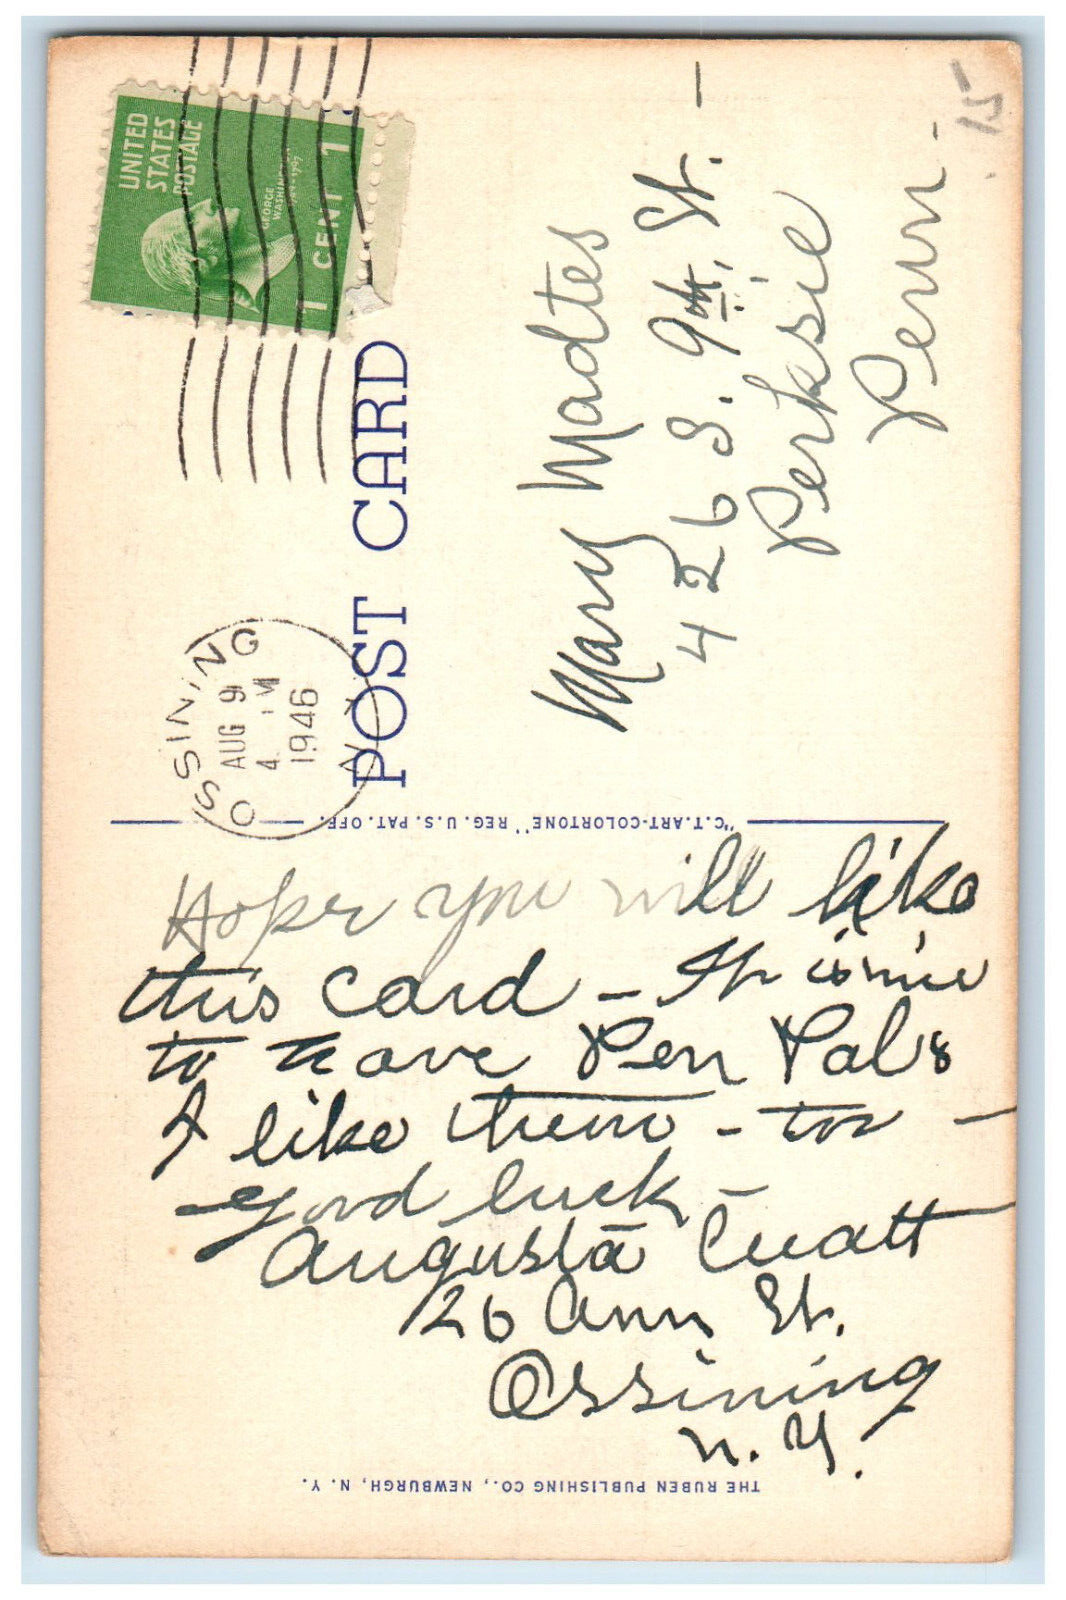 UNITED
STATES
POSTAGE
GEORGE
1 CENT 1
OSSING
AUG 9
4 PM
1946
N.Y.
POST CARD
Mary Madtes
426 S. 9th. St. —
Perksie
Penn -
15
"C.T. ART-COLORTONE" REG. U.S. PAT. OFF.
Hope you will like
this card – It is nice
to have Pen Pals
I like them – too –
good luck –
Augusta Cuatt
26 Ann St.
Ossining
N. Y.
THE RUBEN PUBLISHING CO., NEWBURGH, N. Y.